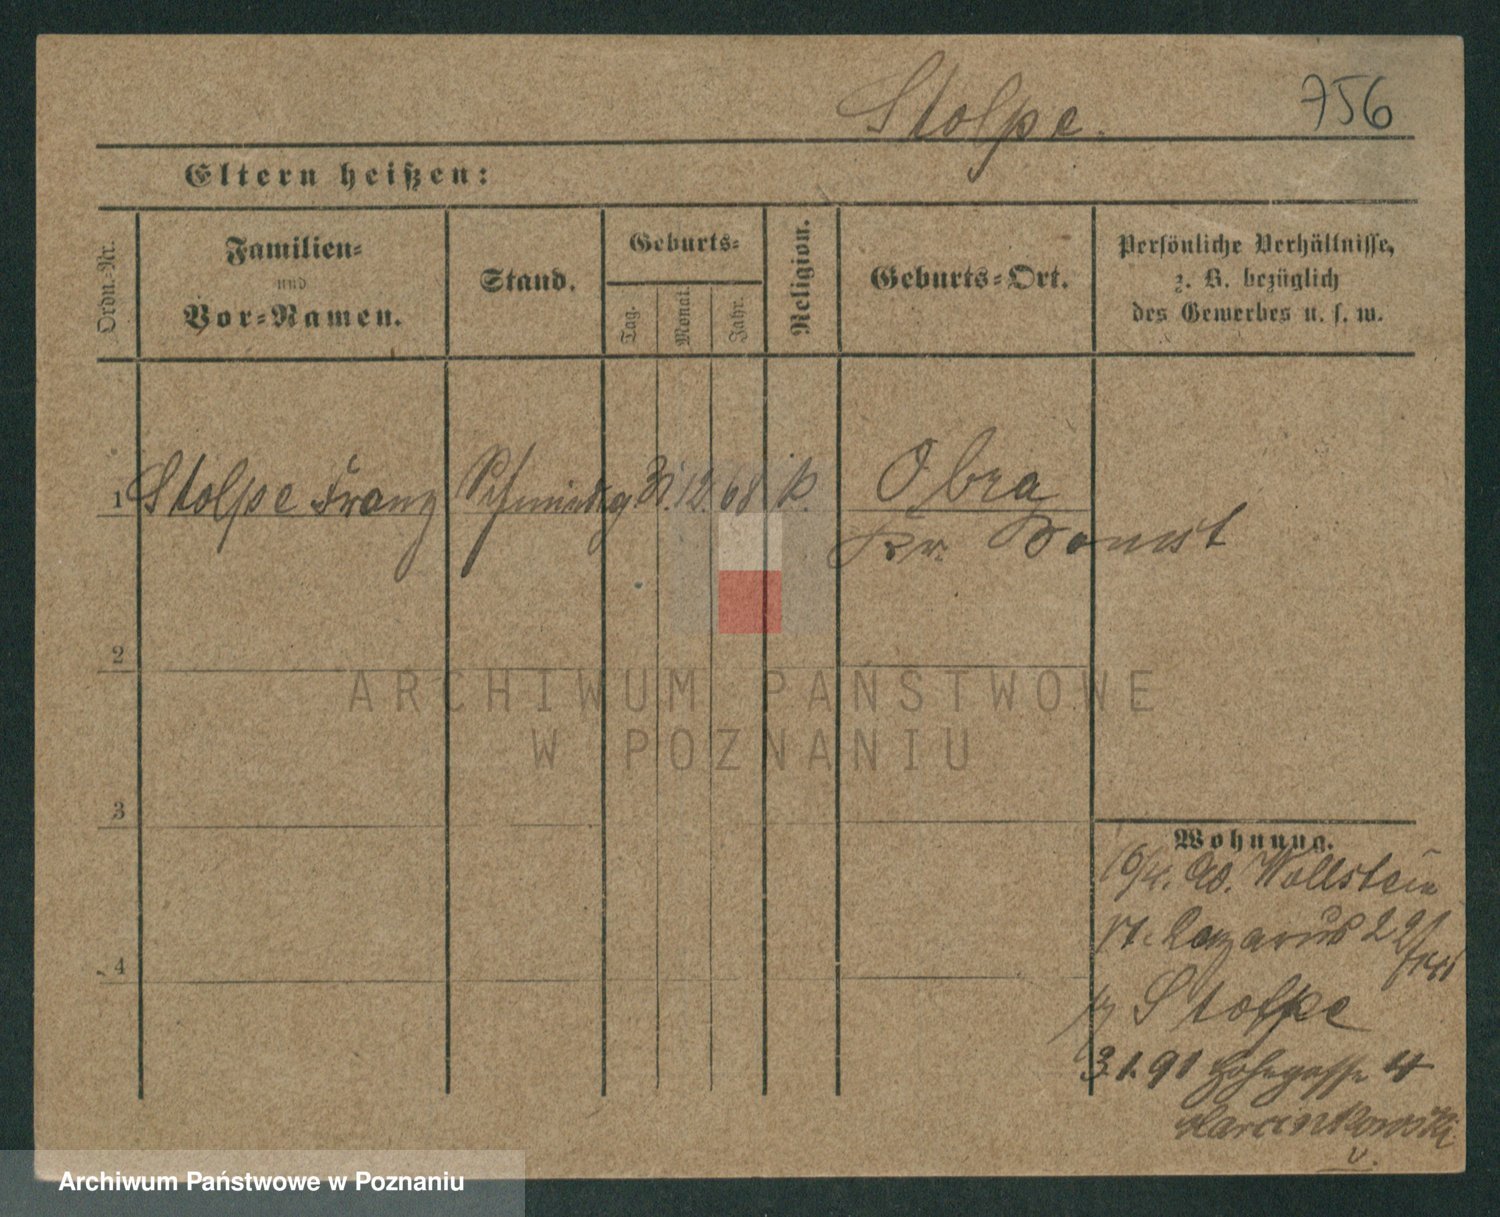 Stolpe. 756
Eltern heißen:
Ordn.-Nr.
Familien-
und
Vor-Namen.
Stand.
Geburts-
Tag.
Monat.
Jahr.
Religion.
Geburts-Ort.
Persönliche Verhältnisse,
z. B. bezüglich
des Gewerbes u. s. w.
1 Stolpe Franz 12. 68 k. Obra
Kr. Bomst
2
ARCHIWUM PAŃSTWOWE
W POZNANIU
3
Wohnung.
Wollstein
St. Lazarus 22
Stolpe
3.1.91 Hohegasse 4
Marcinkowski
4
Archiwum Państwowe w Poznaniu